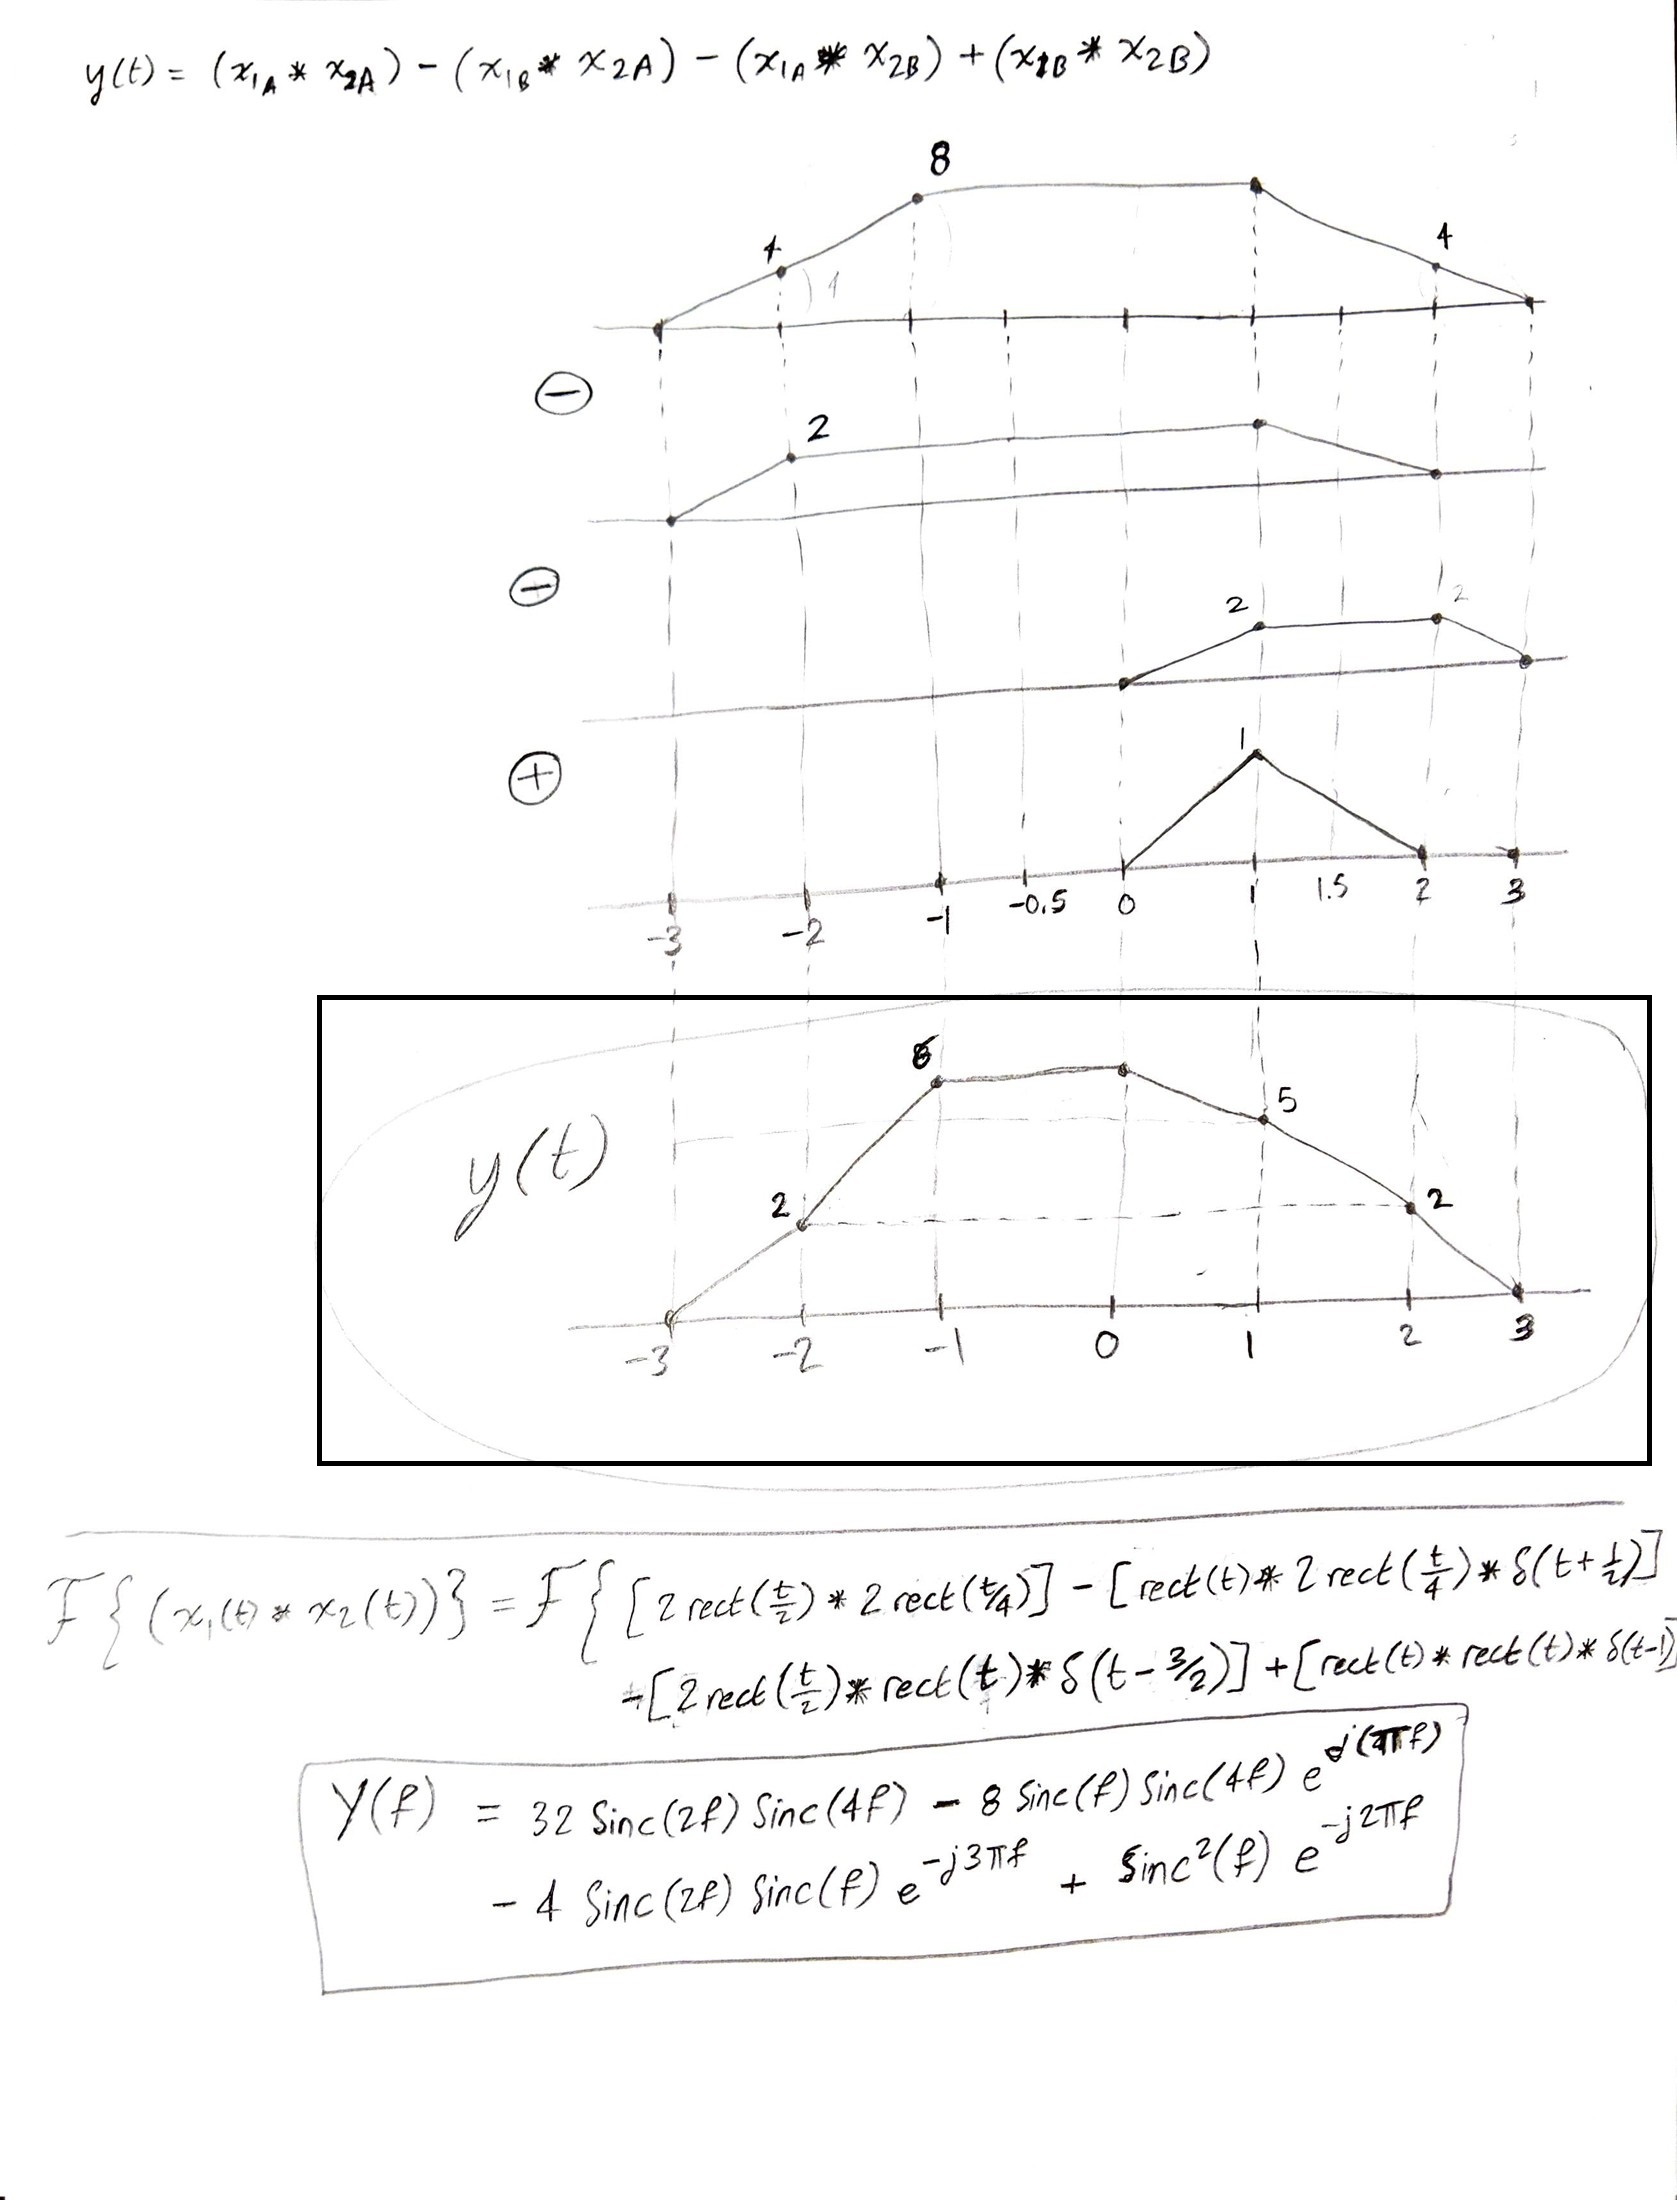 y(t) = (x₁A * x₂A) - (x₁B * x₂A) - (x₁A * x₂B) + (x₁B * x₂B)
8
4
4
1
⊖
2
⊖
2
2
⊕
1
-3 -2 -1 -0.5 0 1 1.5 2 3
6
5
y(t)
2
2
-3 -2 -1 0 1 2 3
F{(x₁(t) * x₂(t))} = F{[2 rect(t/2) * 2 rect(t/4)] - [rect(t) * 2 rect(t/4) * δ(t+½)]
-[2 rect(t/2) * rect(t) * δ(t-3/2)] + [rect(t) * rect(t) * δ(t-1)]
Y(f) = 32 Sinc(2f) Sinc(4f) - 8 Sinc(f) Sinc(4f) e^j(πf)
- 4 Sinc(2f) Sinc(f) e^-j3πf + Sinc²(f) e^-j2πf